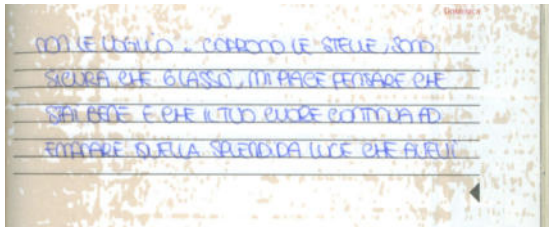 Domenica
NON LE VOGLIO. COPRONO LE STELLE, SONO
SICURA CHE GLASSÙ, MI PIACE PENSARE CHE
STAI BENE E CHE IL TUO CUORE CONTINUA AD
EMANARE QUELLA SPLENDIDA LUCE CHE AVEVI